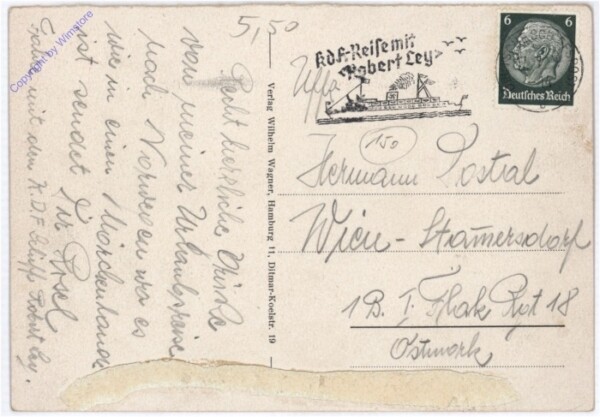 Copyright by Winstore
5,50
Recht herzliche Grüße
von meiner Urlaubsreise
nach Norwegen wo es
wie in einen Märchenlande
ist sendet Dir Poſel
Fahre mit dem K.D.F. Schiff Robert Ley.
Verlag Wilhelm Wagner, Hamburg 11, Ditmar-Koelstr. 19
KdF.-Reise mit
"Robert Ley"
6 6
Deutsches Reich
Uffz
150
Hermann Postral
Wien - Stamersdorf
1 B. I. Flak Rgt 18
Ostmark